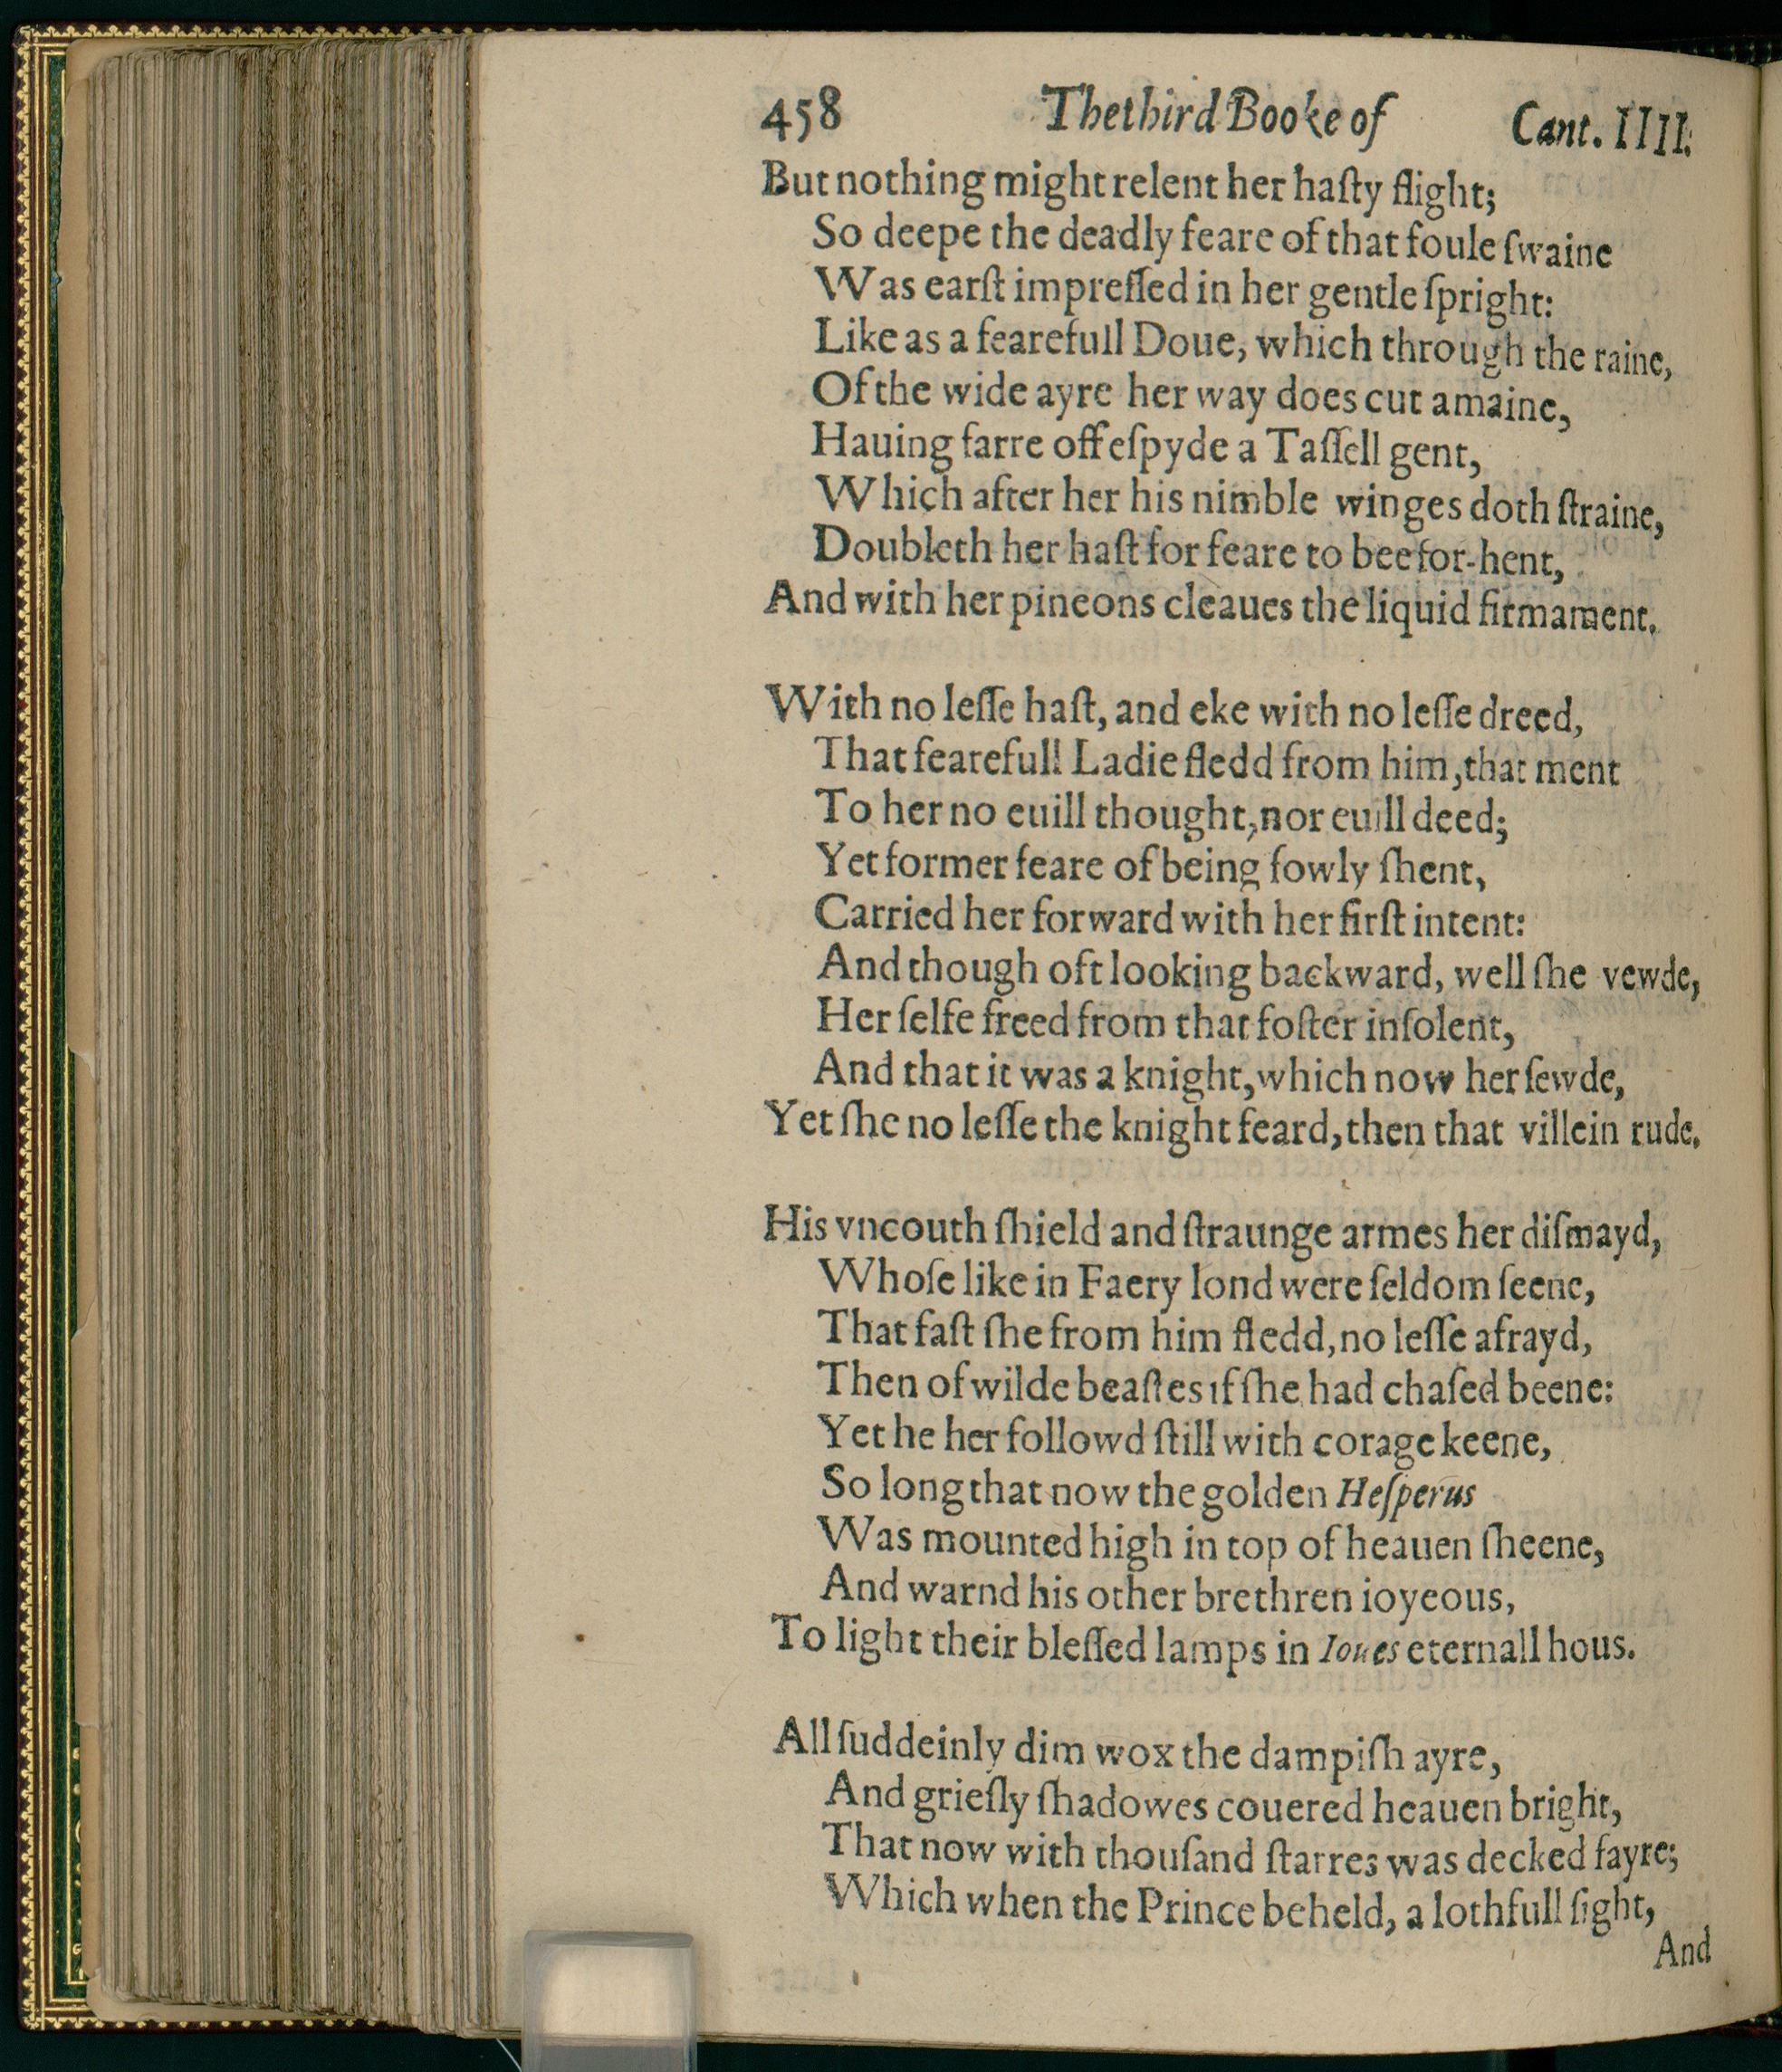 458 The third Booke of Cant. IIII.
But nothing might relent her haſty flight;
So deepe the deadly feare of that foule ſwaine
Was earſt impreſſed in her gentle ſpright:
Like as a fearefull Doue, which through the raine,
Of the wide ayre her way does cut amaine,
Hauing farre off eſpyde a Taſſell gent,
Which after her his nimble winges doth ſtraine,
Doubleth her haſt for feare to bee for-hent,
And with her pineons cleaues the liquid firmament.
With no leſſe haſt, and eke with no leſſe dreed,
That fearefull Ladie fledd from him, that ment
To her no euill thought, nor euill deed;
Yet former feare of being fowly ſhent,
Carried her forward with her firſt intent:
And though oft looking backward, well ſhe vewde,
Her ſelfe freed from that foſter inſolent,
And that it was a knight, which now her ſewde,
Yet ſhe no leſſe the knight feard, then that villein rude.
His vncouth ſhield and ſtraunge armes her diſmayd,
Whoſe like in Faery lond were ſeldom ſeene,
That faſt ſhe from him fledd, no leſſe afrayd,
Then of wilde beaſtes if ſhe had chaſed beene:
Yet he her followd ſtill with corage keene,
So long that now the golden Heſperus
Was mounted high in top of heauen ſheene,
And warnd his other brethren ioyeous,
To light their bleſſed lamps in Ioues eternall hous.
All ſuddeinly dim wox the dampiſh ayre,
And grieſly ſhadowes couered heauen bright,
That now with thouſand ſtarres was decked fayre;
Which when the Prince beheld, a lothfull ſight,
And